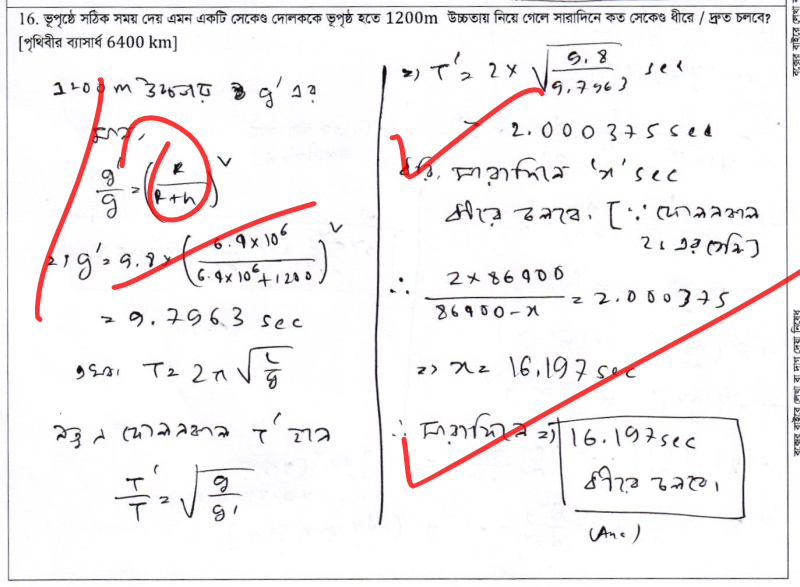 16. ভূপৃষ্ঠে সঠিক সময় দেয় এমন একটি সেকেণ্ড দোলককে ভূপৃষ্ঠ হতে 1200m উচ্চতায় নিয়ে গেলে সারাদিনে কত সেকেণ্ড ধীরে / দ্রুত চলবে?
[পৃথিবীর ব্যাসার্ধ 6400 km]
1200 m উচ্চতায় g' এর
মান,
g'/g = (R/R+h)²
=> g' = 9.8 × (6.4×10⁶/6.4×10⁶+1200)²
= 9.7963 sec
এখন, T = 2π √(L/g)
নতুন দোলনকাল T' হলে
T'/T = √(g/g')
=> T' = 2 × √(9.8/9.7963) sec
= 2.000375 sec
ধরি, সারাদিনে 'x' sec
ধীরে চলবে। [∵ দোলনকাল
2s এর বেশি]
∴ 2×86400/86400-x = 2.000375
=> x = 16.197 sec
∴ সারাদিনে => 16.197 sec
ধীরে চলবে।
(Ans)